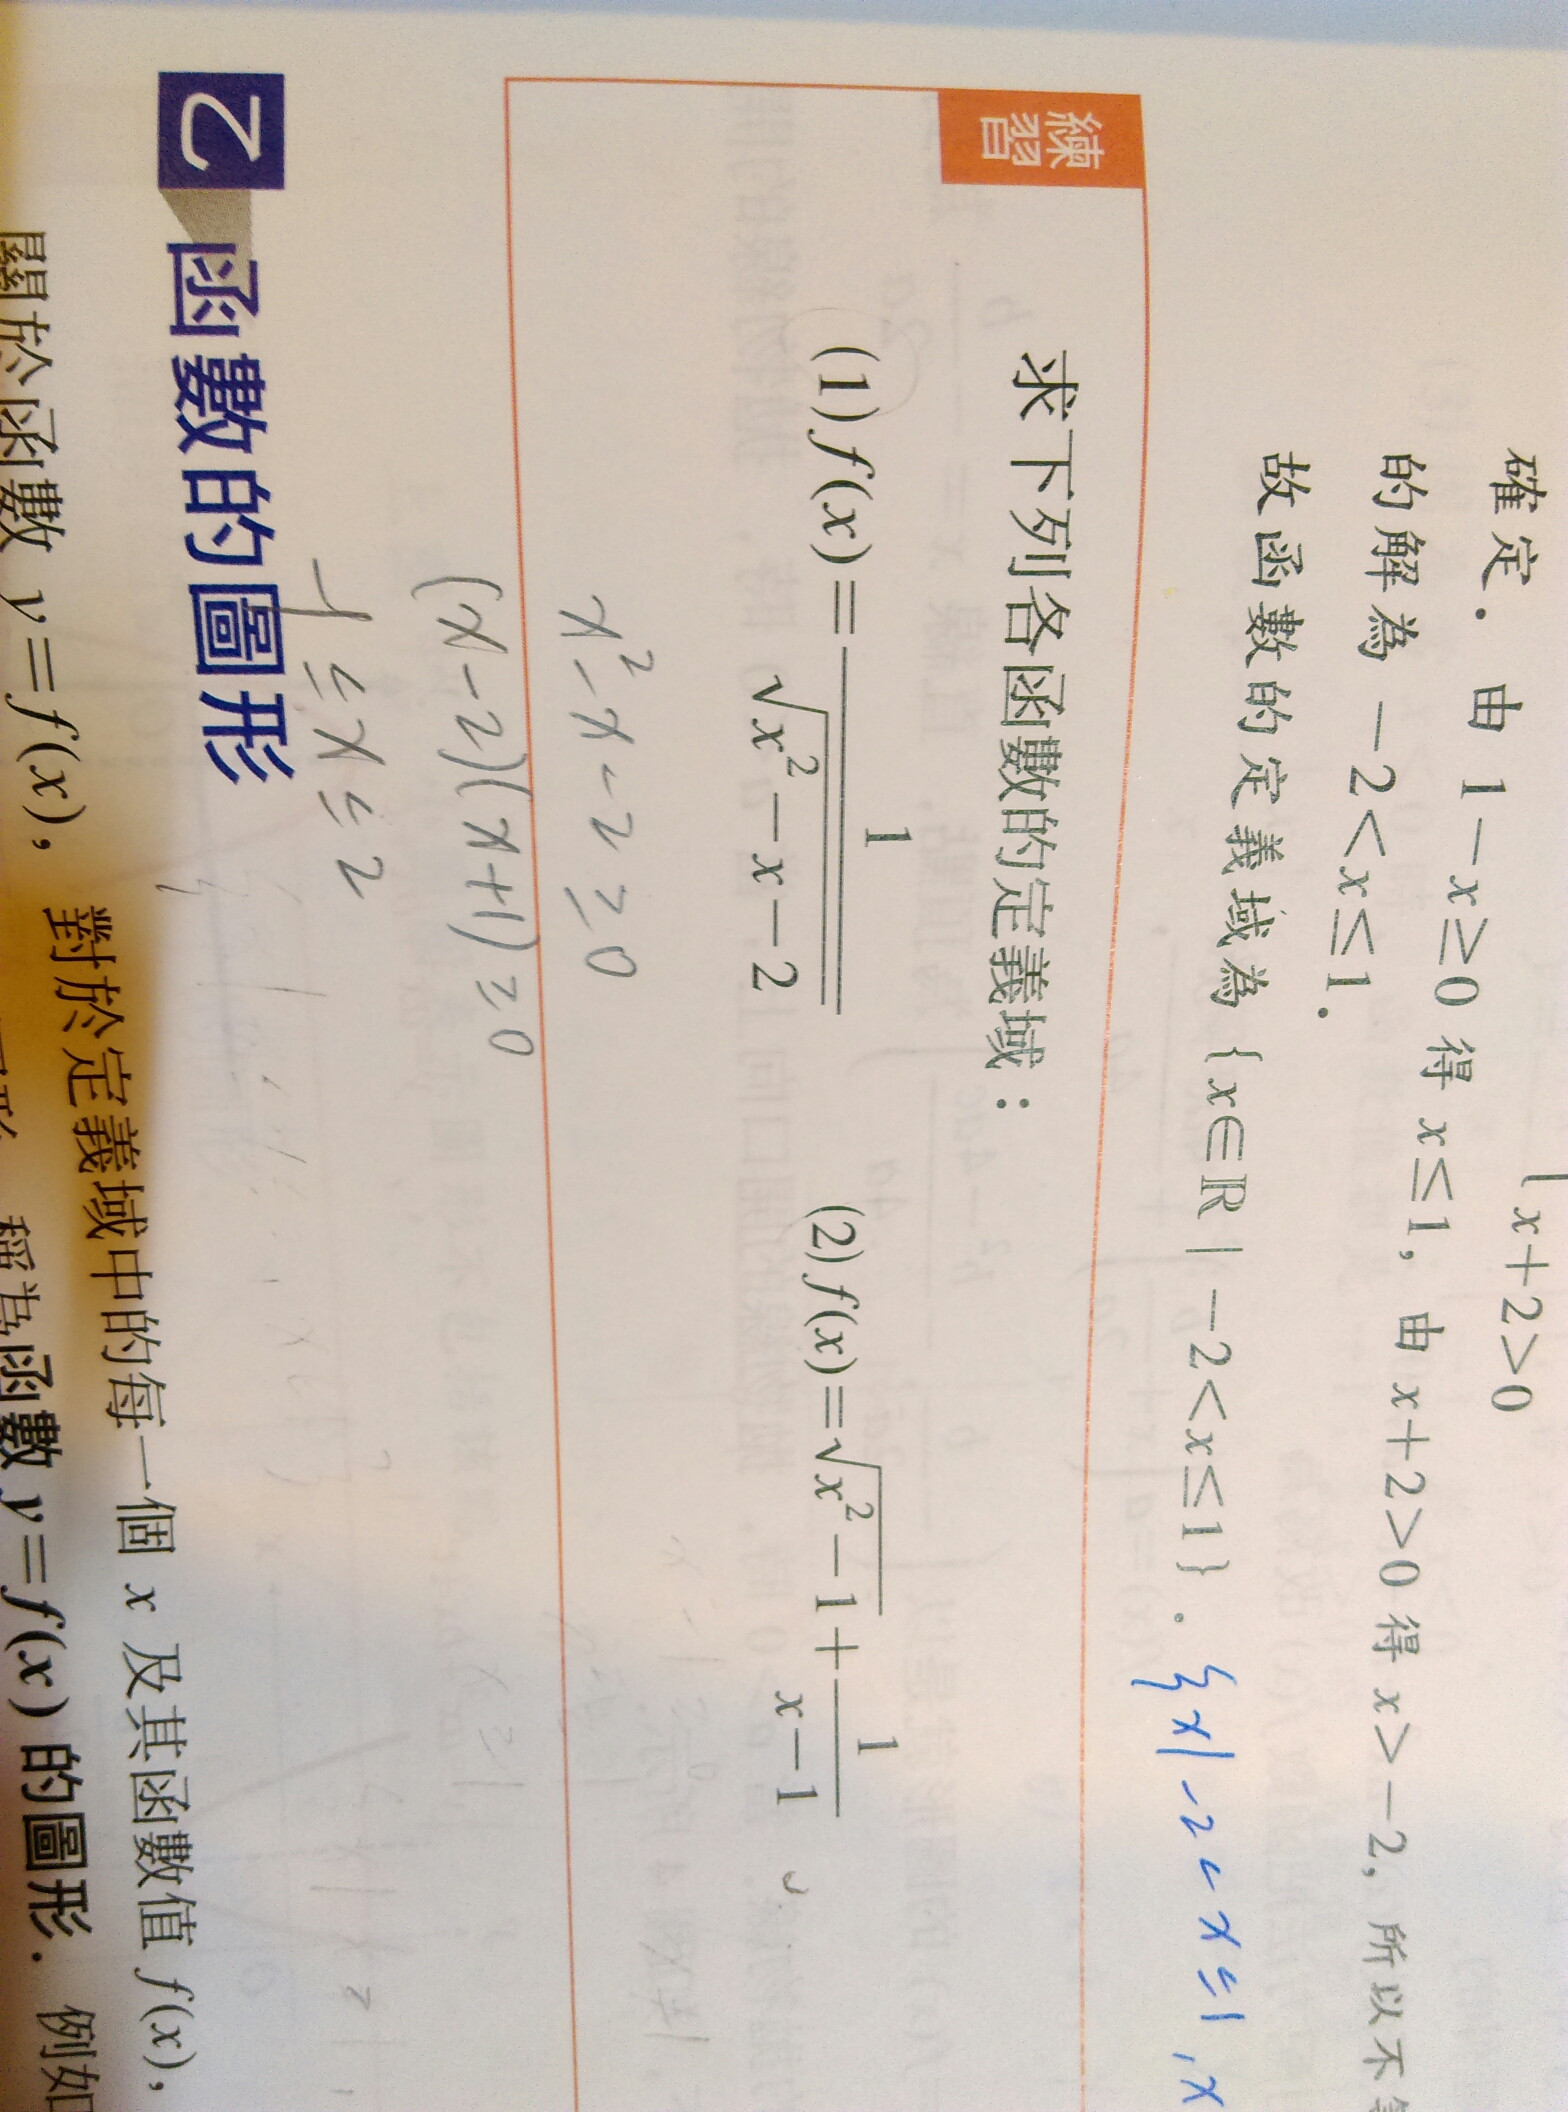 x+2>0
確定. 由 1-x≥0 得 x≤1, 由 x+2>0 得 x>-2, 所以不
的解為 -2<x≤1.
故函數的定義域為 {x∈ℝ | -2<x≤1}. {x|-2<x≤1, x
練習
求下列各函數的定義域:
(1) f(x)=1/√(x²-x-2) (2) f(x)=√(x²-1)+1/(x-1)
x²-x-2≥0
(x-2)(x+1)≥0
-1≤x≤2
乙 函數的圖形
關於函數 y=f(x), 對於定義域中的每一個 x 及其函數值 f(x),
函數 y=f(x) 的圖形. 例如